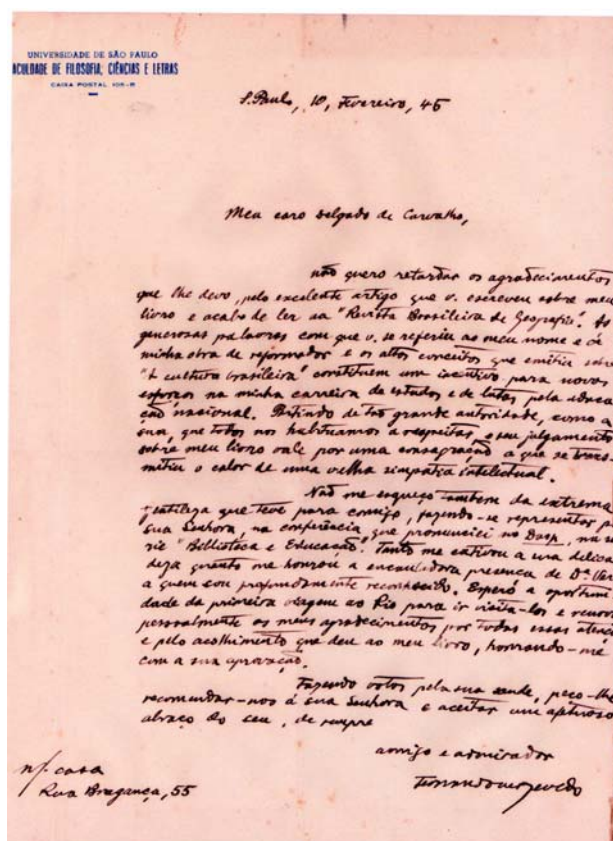 UNIVERSIDADE DE SÃO PAULO
FACULDADE DE FILOSOFIA, CIÊNCIAS E LETRAS
CAIXA POSTAL 105-B
S. Paulo, 10, Fevereiro, 45
Meu caro Delgado de Carvalho,
não quero retardar os agradecimentos
que lhe devo, pelo excelente artigo que v. escreveu sobre meu
livro e acabo de ler na "Revista Brasileira de Geografia". As
generosas palavras com que v. se referiu ao meu nome e à
minha obra de reformador e os altos conceitos que emitiu sobre
"A cultura brasileira" constituem um incentivo para novos
esforços na minha carreira de estudos e de lutas pela educa
ção nacional. Partindo de tão grande autoridade, como a
sua, que todos nos habituamos a respeitar, o seu julgamento
sobre meu livro vale por uma consagração a que se trans-
mitiu o calor de uma velha simpatia intelectual.
Não me esqueço tambem da extrema
gentileza que teve para comigo, fazendo-se representar p
sua Senhora, na conferência, que pronunciei no Dasp, na se
rie "Biblioteca e Educação". Tanto me cativou a sua delica
deza quanto me honrou a encantadora presença de Dª Ver
a quem sou profundamente reconhecido. Espero a oportuni
dade da primeira viagem ao Rio para ir visita-los e renovar
pessoalmente os meus agradecimentos por todas essas atenç
e pelo acolhimento que deu ao meu livro, honrando-me
com a sua aprovação.
Fazendo votos pela sua saude, peço-lhe
recomendar-nos á sua Senhora e aceitar um afetuoso
abraço do seu, de sempre
amigo e admirador
Fernando de Azevedo
n/ casa
Rua Bragança, 55